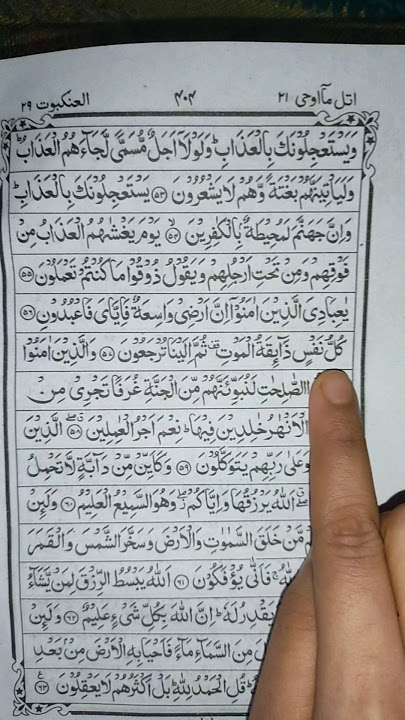 اتل مآاوحی ٢١ ۴٠۴ العنكبوت ٢٩
وَيَسْتَعْجِلُوْنَكَ بِالْعَذَابِ ؕ وَلَوْلَاۤ اَجَلٌ مُّسَمًّى لَّجَآءَهُمُ الْعَذَابُ ؕ
وَلَيَاْتِيَنَّهُمْ بَغْتَةً وَّهُمْ لَا يَشْعُرُوْنَ ٥٣ يَسْتَعْجِلُوْنَكَ بِالْعَذَابِ ؕ
وَاِنَّ جَهَنَّمَ لَمُحِيْطَةٌۢ بِالْكٰفِرِيْنَ ٥٤ يَوْمَ يَغْشٰىهُمُ الْعَذَابُ مِنْ
فَوْقِهِمْ وَمِنْ تَحْتِ اَرْجُلِهِمْ وَيَقُوْلُ ذُوْقُوْا مَا كُنْتُمْ تَعْمَلُوْنَ ٥٥
يٰعِبَادِىَ الَّذِيْنَ اٰمَنُوْۤا اِنَّ اَرْضِىْ وَاسِعَةٌ فَاِيَّاىَ فَاعْبُدُوْنِ ٥٦
كُلُّ نَفْسٍ ذَآئِقَةُ الْمَوْتِ ثُمَّ اِلَيْنَا تُرْجَعُوْنَ ٥٧ وَالَّذِيْنَ اٰمَنُوْا
الصّٰلِحٰتِ لَنُبَوِّئَنَّهُمْ مِّنَ الْجَنَّةِ غُرَفًا تَجْرِىْ مِنْ
الْاَنْهٰرُ خٰلِدِيْنَ فِيْهَا ؕ نِعْمَ اَجْرُ الْعٰمِلِيْنَ ٥٨ الَّذِيْنَ
وَعَلٰى رَبِّهِمْ يَتَوَكَّلُوْنَ ٥٩ وَكَاَيِّنْ مِّنْ دَآبَّةٍ لَّا تَحْمِلُ
اَللّٰهُ يَرْزُقُهَا وَاِيَّاكُمْ ۖ وَهُوَ السَّمِيْعُ الْعَلِيْمُ ٦٠ وَلَئِنْ
مَّنْ خَلَقَ السَّمٰوٰتِ وَالْاَرْضَ وَسَخَّرَ الشَّمْسَ وَالْقَمَرَ
اللّٰهُ ۚ فَاَنّٰى يُؤْفَكُوْنَ ٦١ اَللّٰهُ يَبْسُطُ الرِّزْقَ لِمَنْ يَّشَآءُ
يَقْدِرُ لَهٗ ؕ اِنَّ اللّٰهَ بِكُلِّ شَىْءٍ عَلِيْمٌ ٦٢ وَلَئِنْ
مِنَ السَّمَآءِ مَآءً فَاَحْيَا بِهِ الْاَرْضَ مِنْۢ بَعْدِ
قُلِ الْحَمْدُ لِلّٰهِ ؕ بَلْ اَكْثَرُهُمْ لَا يَعْقِلُوْنَ ٦٣